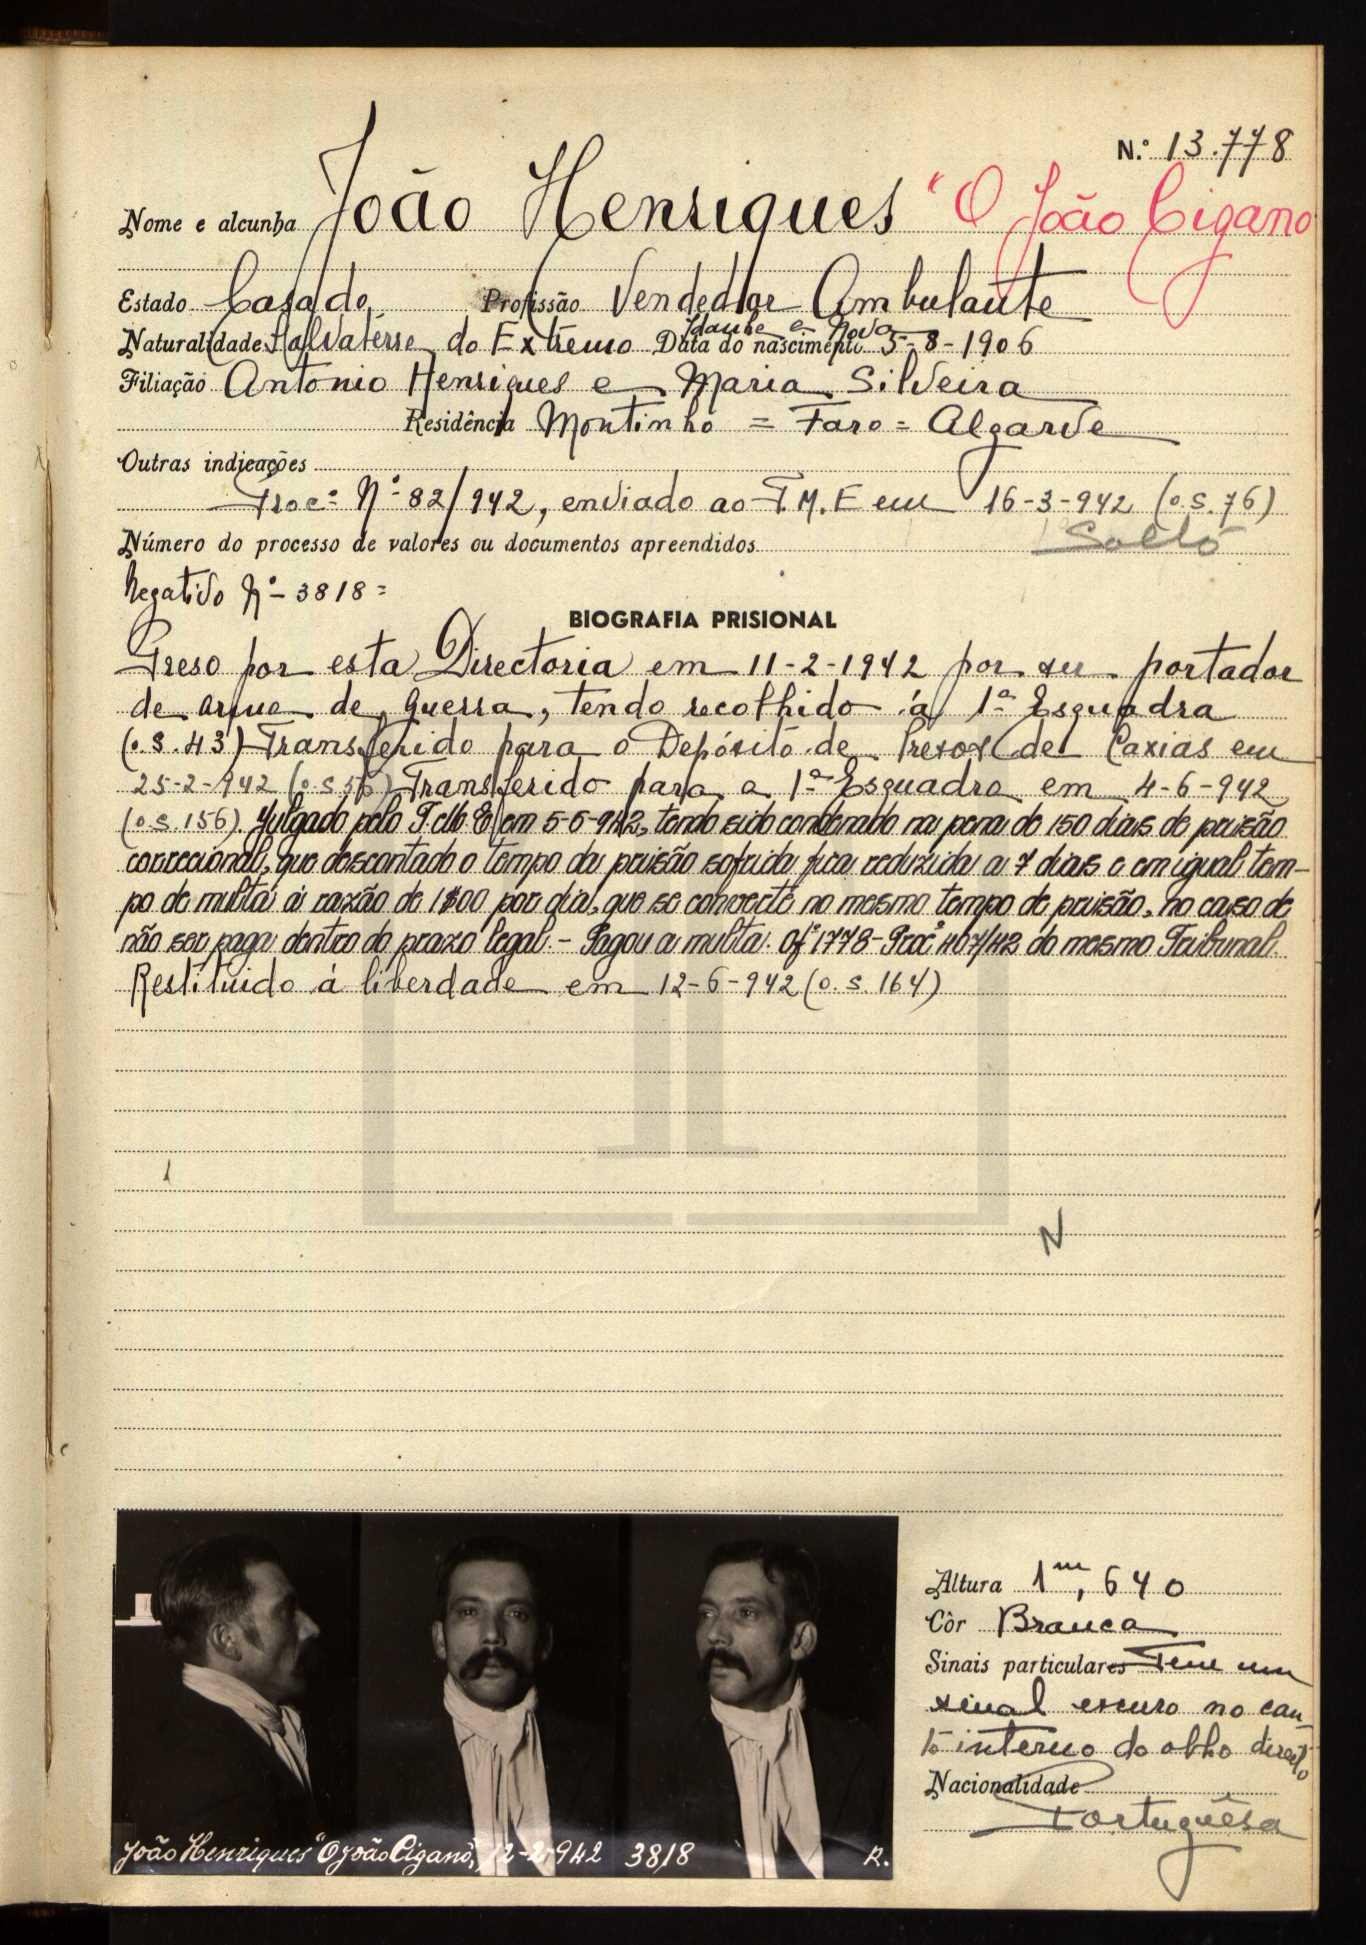 N.º 13.778
Nome e alcunha João Henriques "O João Cigano
Estado Casado Profissão Vendedor Ambulante
Idanha a Nova
Naturalidade Salvatérre do Extremo Data do nascimento 5-8-1906
Filiação Antonio Henriques e Maria Silveira
Residência Montinho = Faro = Algarve
Outras indicações
Proc.º N.º 82/942, enviado ao T.M.E em 16-3-942 (o.s. 76)
Solto
Número do processo de valores ou documentos apreendidos
Negativo N.º 3818 =
BIOGRAFIA PRISIONAL
Preso por esta Directoria em 11-2-1942 por ser portador
de arma de guerra, tendo recolhido á 1ª Esquadra
(o.s. 43) Transferido para o Depósito de Presos de Caxias em
25-2-942 (o.s 56) Transferido para a 1ª Esquadra em 4-6-942
(o.s. 156). Julgado pelo T.M.E. em 5-6-942, tendo sido condenado na pena de 150 dias de prisão
correcional, que descontado o tempo da prisão sofrida fica reduzida a 7 dias e em igual tem-
po de multa á razão de 1$00 por dia, que se converte no mesmo tempo de prisão, no caso de
não ser paga dentro do prazo legal. - Pagou a multa. Ofº 1778 - Procº 407/42 do mesmo Tribunal.
Restituido á liberdade em 12-6-942 (o.s. 164)
N
Altura 1m,640
Côr Branca
Sinais particulares Tem um
sinal escuro no can
to interno do olho direito
Nacionalidade
Portuguêsa
João Henriques "O João Cigano", 12-2-942 3818 R.